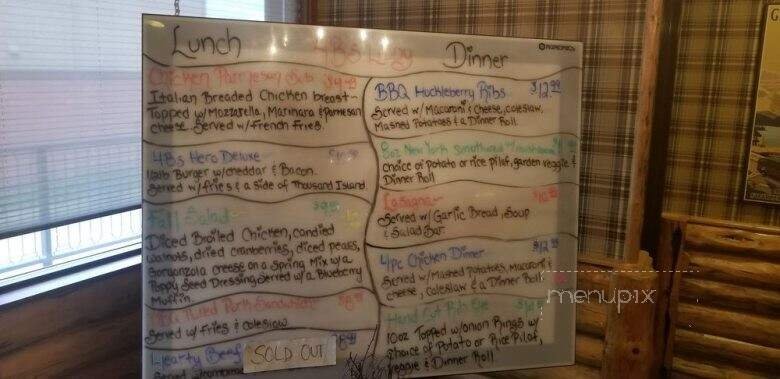 Lunch
4B's
Dinner
Chicken Parmesan Sub $9.49
Italian Breaded Chicken breast-
Topped w/Mozzarella, Marinara & Parmesan
cheese. Served w/French Fries.
4B's Hero Deluxe
1/2lb Burger w/cheddar & Bacon.
Served w/fries & a side of Thousand Island
Fall Salad
Diced Broiled Chicken, candied
walnuts, dried cranberries, diced pears,
Gorganzola creese on a Spring Mix w/a
Poppy Seed Dressing. Served w/a Blueberry
Muffin
Pulled Pork Sandwich
Served w/ Fries & coleslaw
Hearty Beef
SOLD OUT
Served
BBQ Huckleberry Ribs $12.99
Served w/Macaroni & Cheese, coleslaw,
Mashed Potatoes & a Dinner Roll
8oz New York
choice of Potato or rice pilaf, garden veggie &
Dinner Roll
Lasagna
Served w/ Garlic Bread, Soup
& Salad Bar
4pc Chicken Dinner
Served w/Mashed Potatoes, Macaroni &
cheese, Coleslaw & a Dinner Roll
Hand Cut Rib Eye
10oz Topped w/onion Rings w/
choice of Potato or Rice Pilaf,
veggie & Dinner Roll
menupix